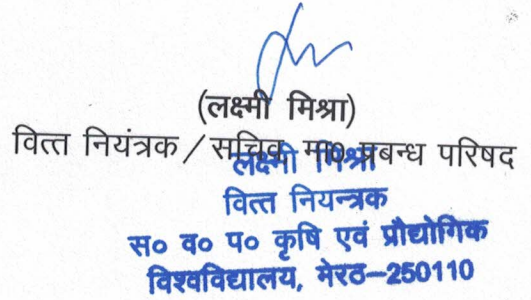 (लक्ष्मी मिश्रा)
वित्त नियंत्रक/सचिव, मा० प्रबन्ध परिषद
लक्ष्मी मिश्रा
वित्त नियन्त्रक
स० व० प० कृषि एवं प्रौद्योगिक
विश्वविद्यालय, मेरठ–250110